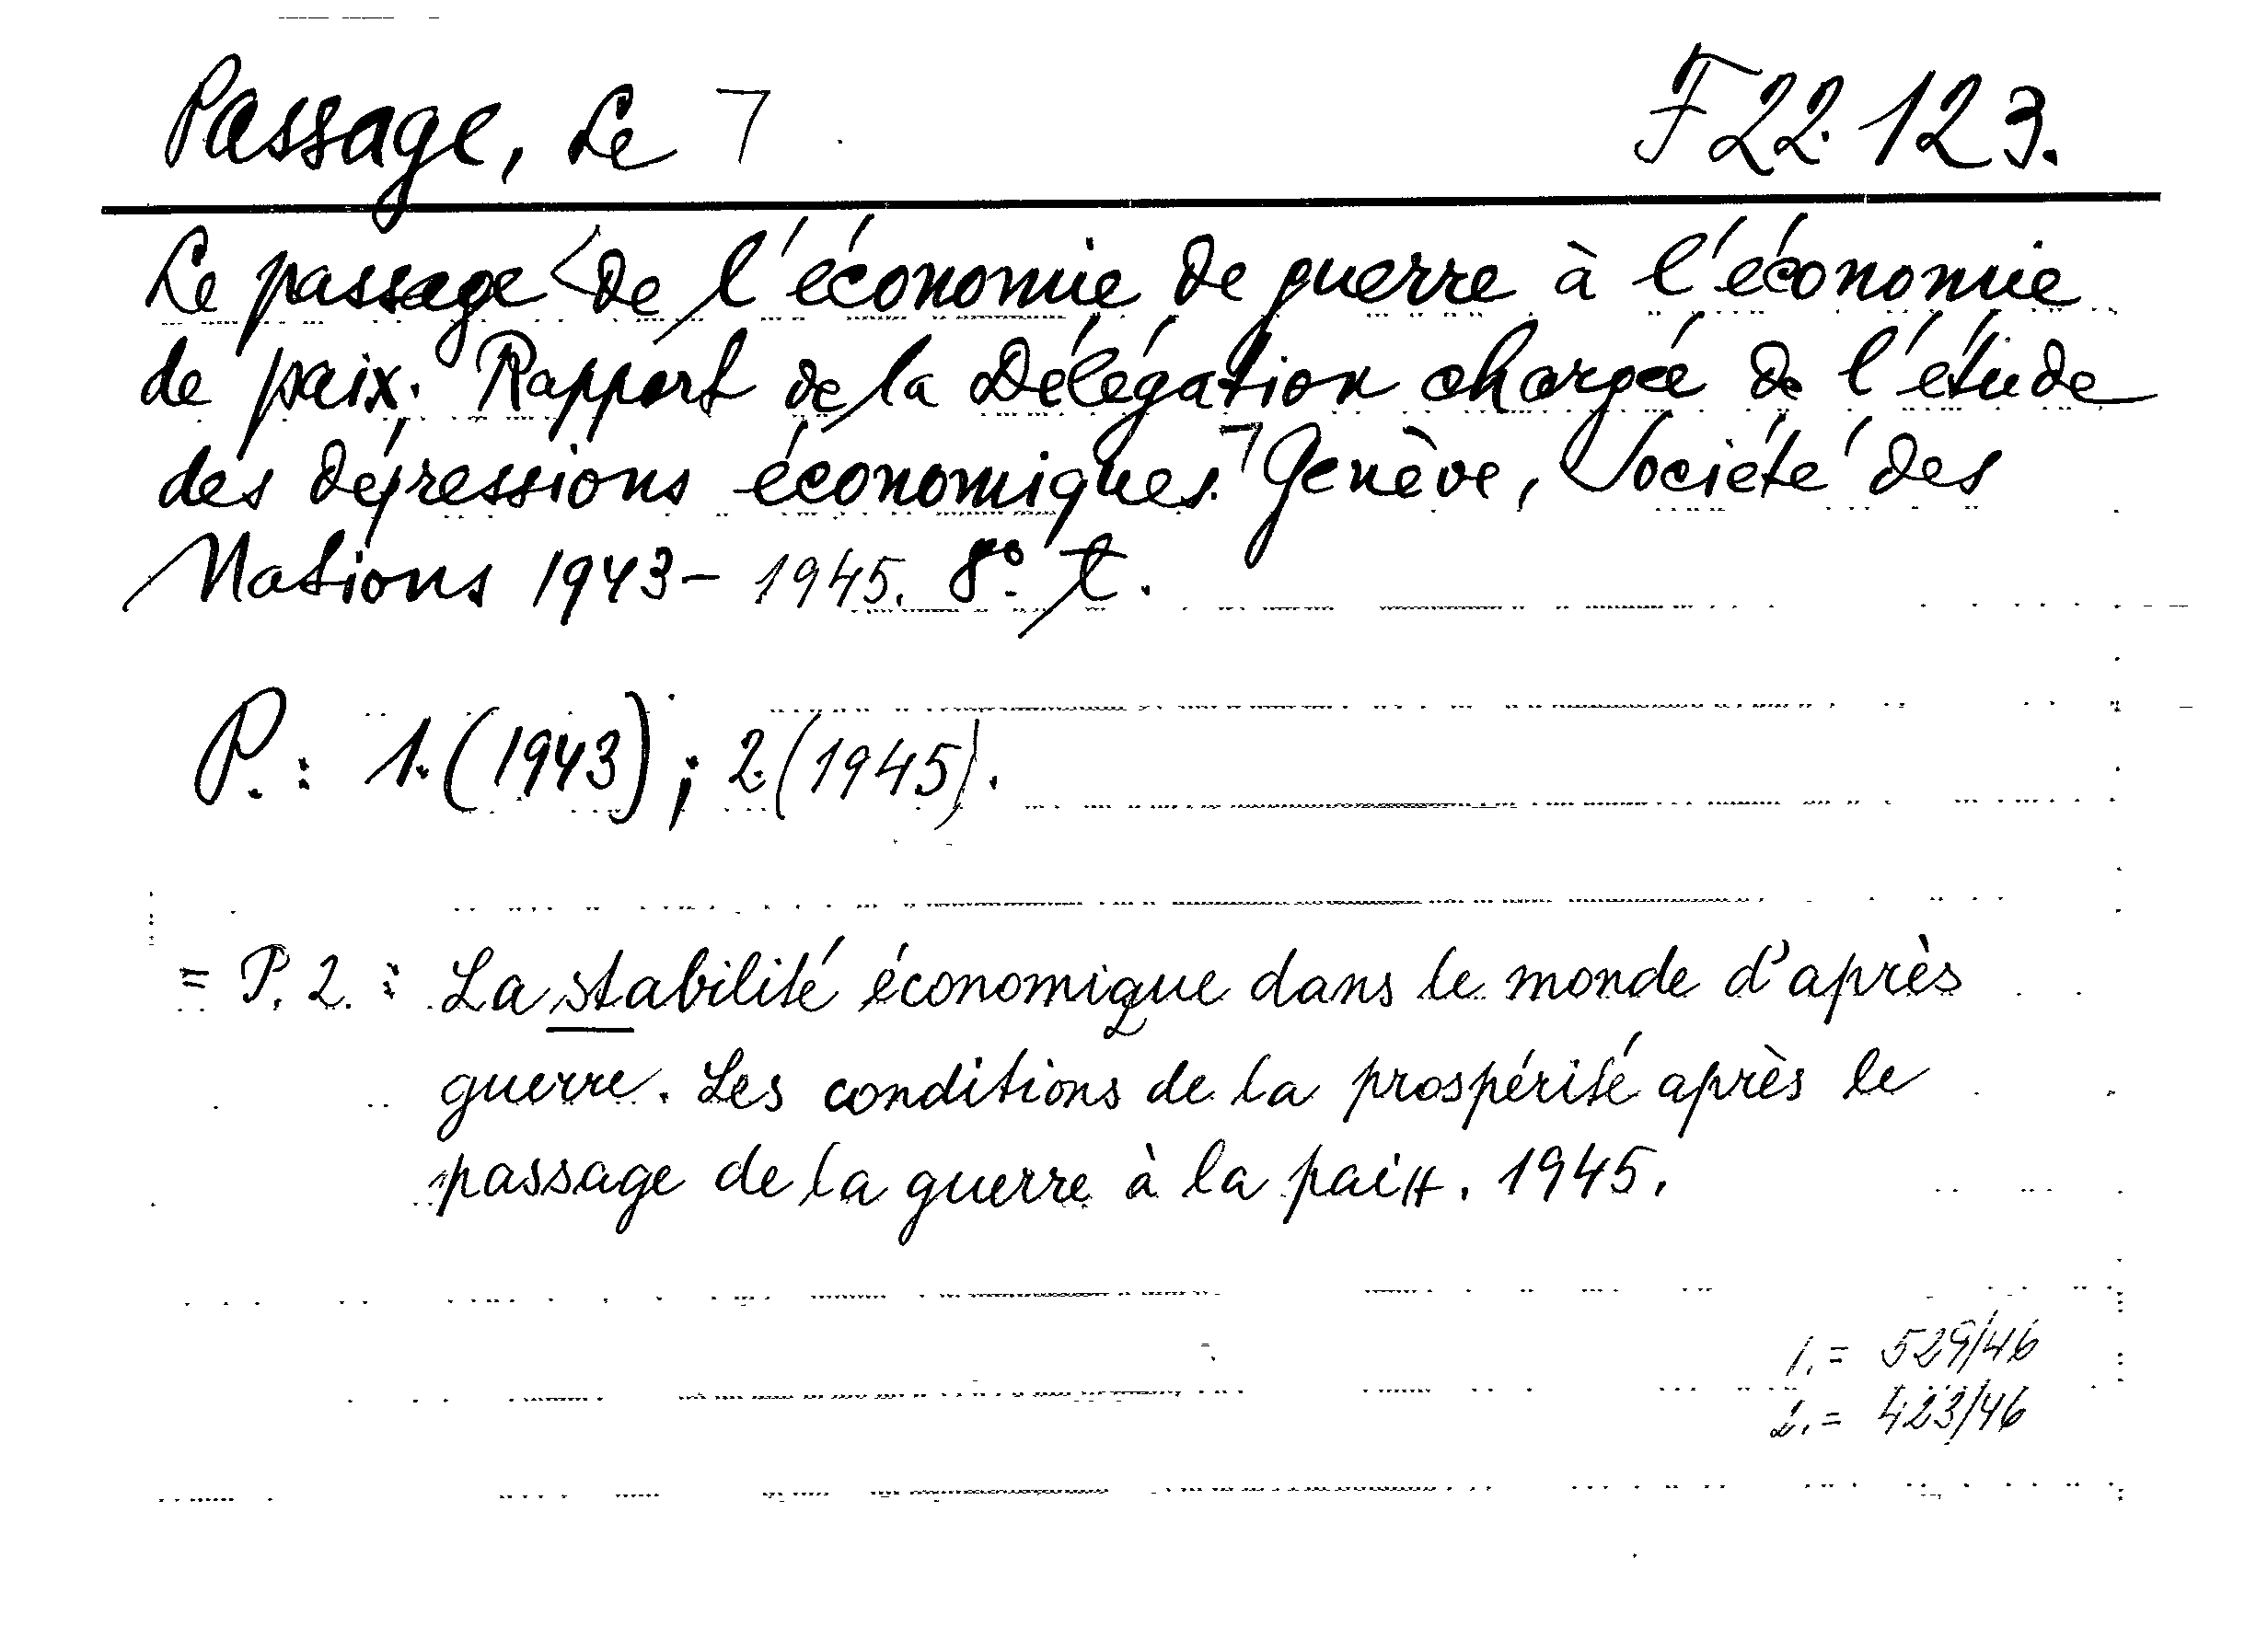 Passage, Le ⁊ F 22.123.
Le passage < de l'économie de guerre à l'économie
de paix. Rapport de la Délégation chargée de l'étude
des dépressions économiques. ⁊ Genève, Société des
Nations 1943-1945. 8°. t.
P.: 1.(1943); 2.(1945).
= P. 2.: La stabilité économique dans le monde d'après
guerre. Les conditions de la prospérité après le
passage de la guerre à la paix. 1945.
1. = 529/46
2. = 423/46